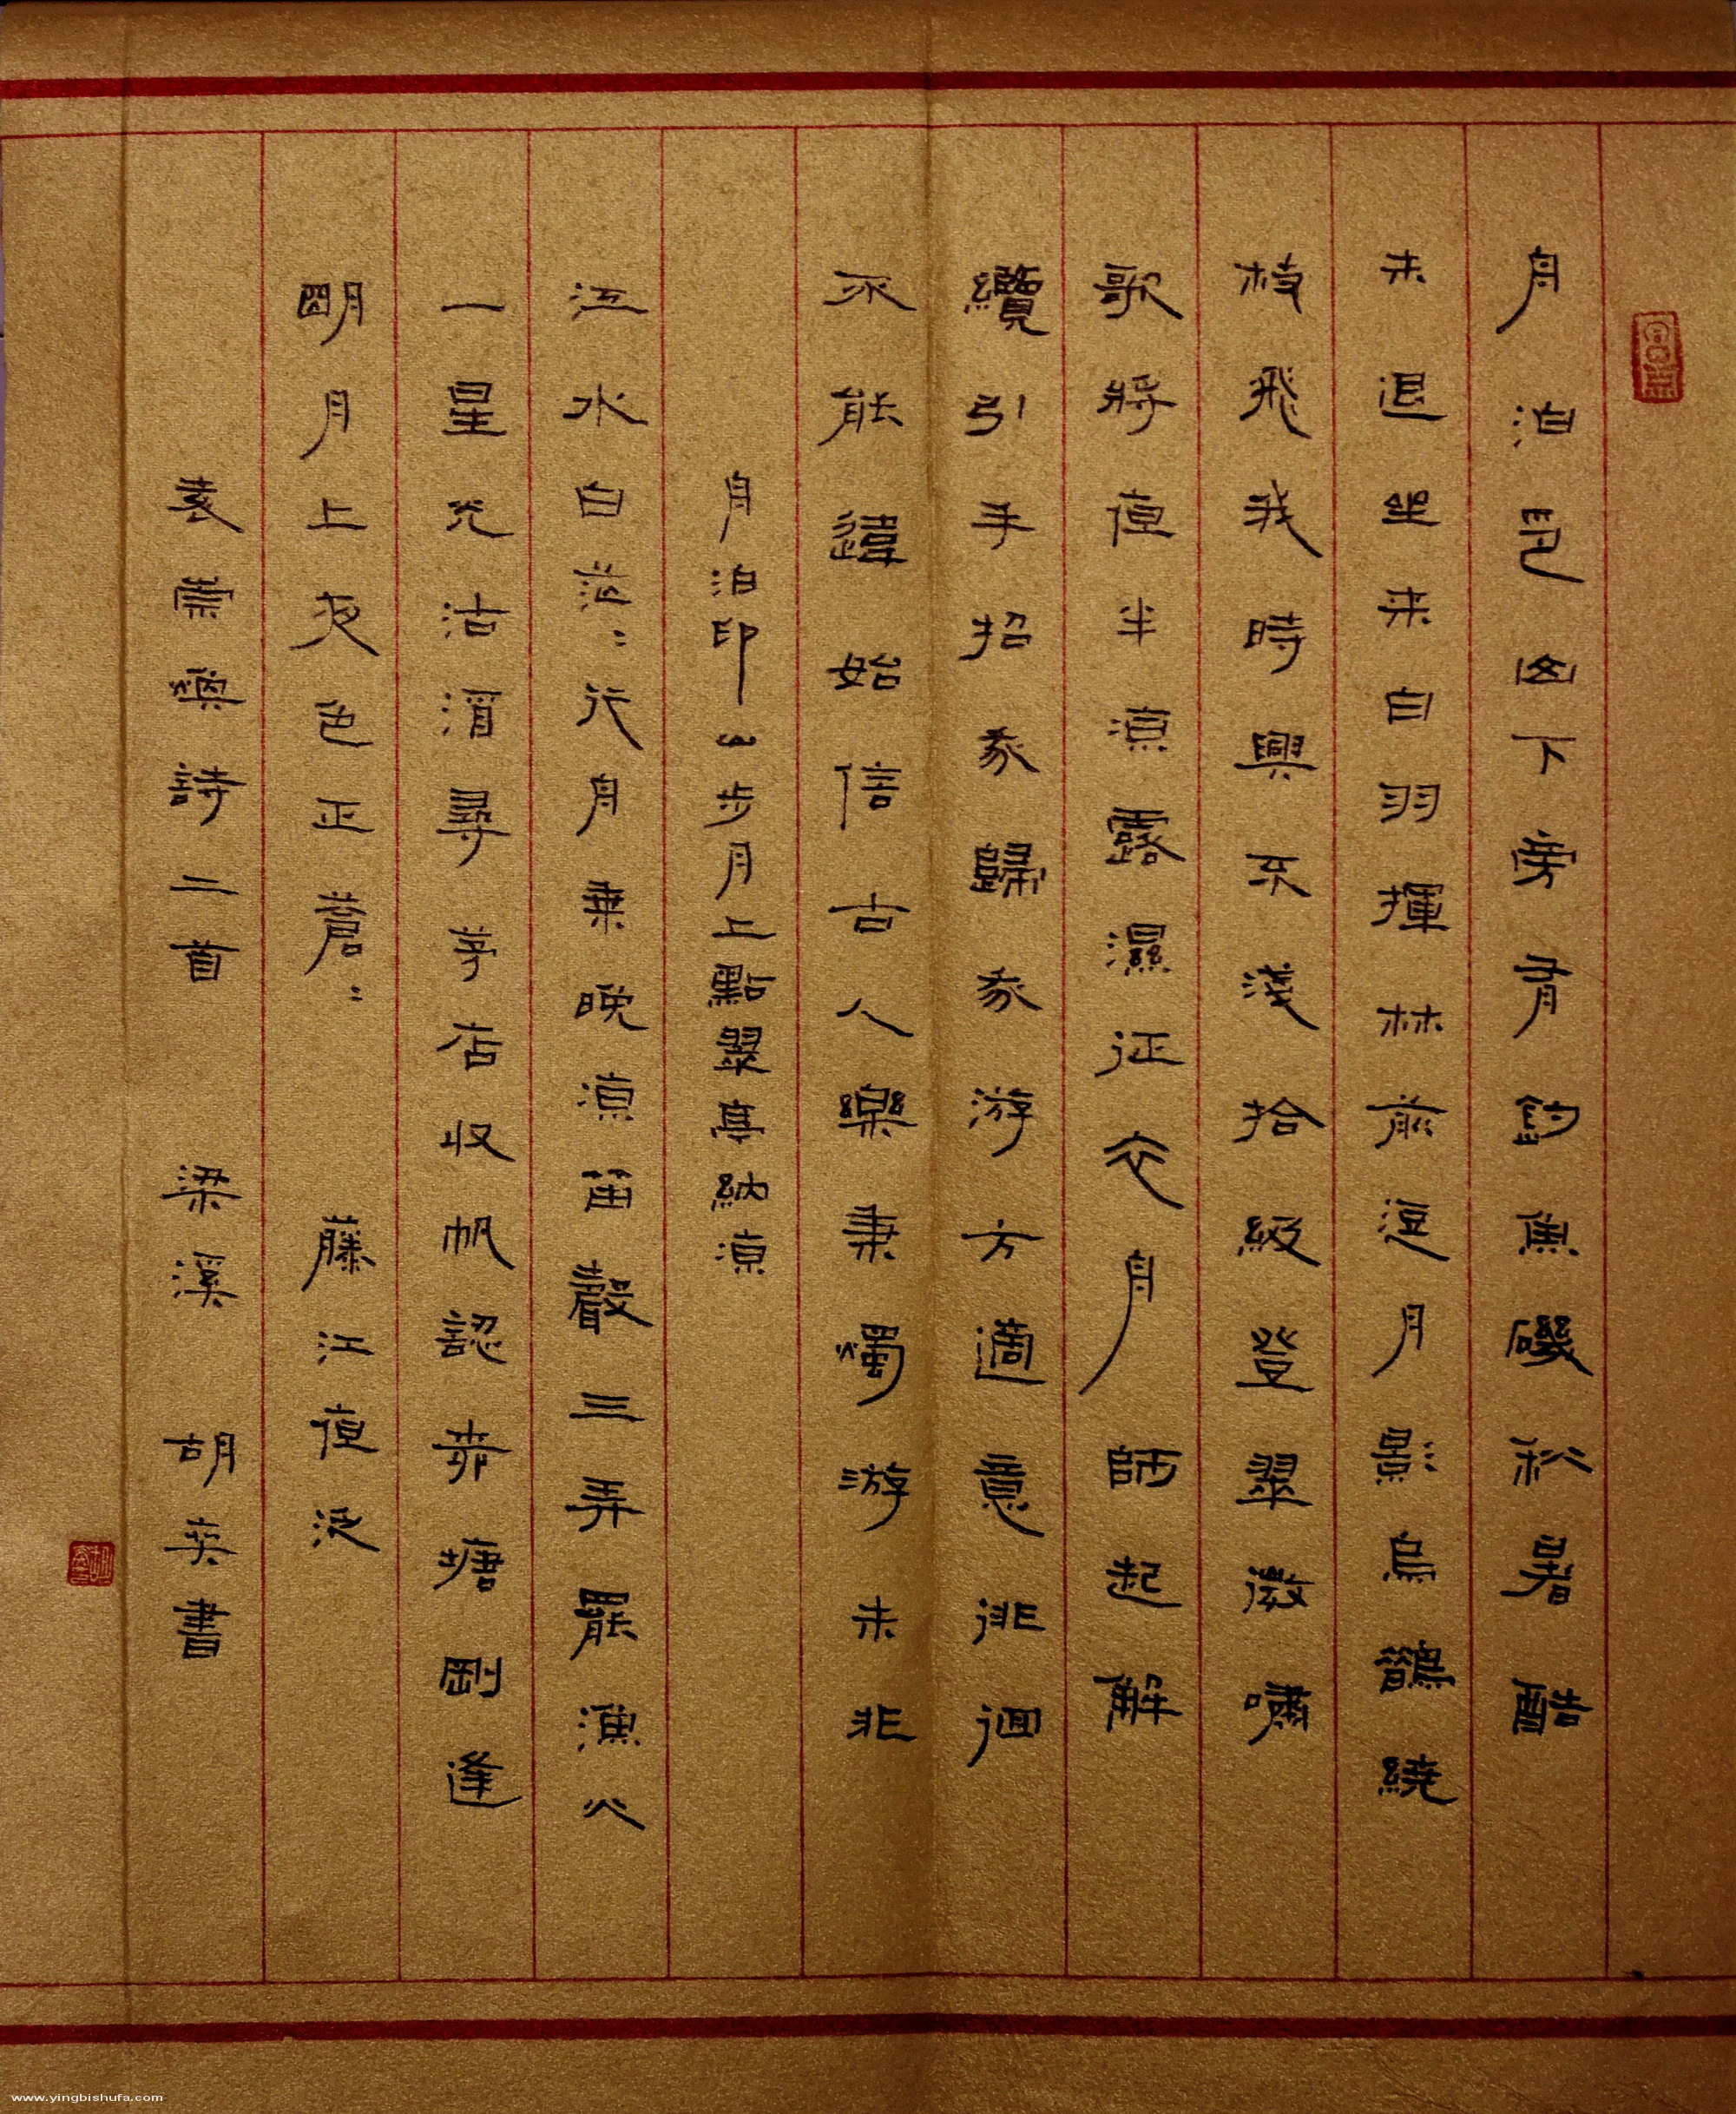 舟泊邑西下旁有釣魚磯秋暑酷
未退坐来白羽揮林前逗月影烏鵲繞
枝飛我時興不淺拾級登翠微嘯
歌將夜半凉露濕征衣舟師起解
纜引手招我歸我游方適意徘徊
不能違始信古人樂秉燭游未非
舟泊印山步月上點翠亭納凉
江水白茫：行舟乘晚凉笛聲三弄罷漁火
一星光沽酒尋茅店收帆認葑塘剛逢
明月上夜色正蒼：　藤江夜泛
袁崇煥詩二首　梁溪　胡奕書
www.yingbishufa.com